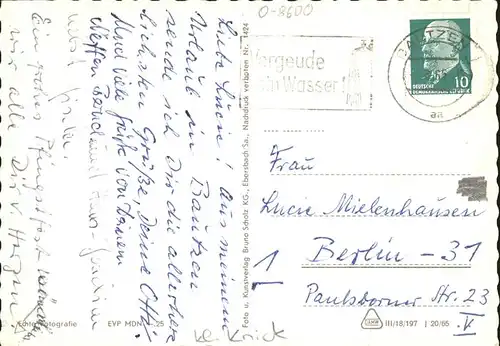 O-8600
Vergeude
kein Wasser!
BAUTZEN
aa
10
DEUTSCHE
DEMOKRATISCHE REPUBLIK
Liebe Lucie! Aus meinem
Urlaub in Bautzen
sende ich Dir die allerherz-
lichsten Grüße, Deine Otti.
Und viele Grüße von Deinem
Neffen
und
Ein frohes Pfingstfest wünschen
wir alle Dir
Foto u. Kunstverlag Bruno Scholz KG., Ebersbach Sa., Nachdruck verboten Nr. 1424
Frau
Lucie Mielenhausen
Berlin - 31
1
Paulsborner Str. 23
V
Echte Fotografie EVP MDN -.25
III/18/197 20/65